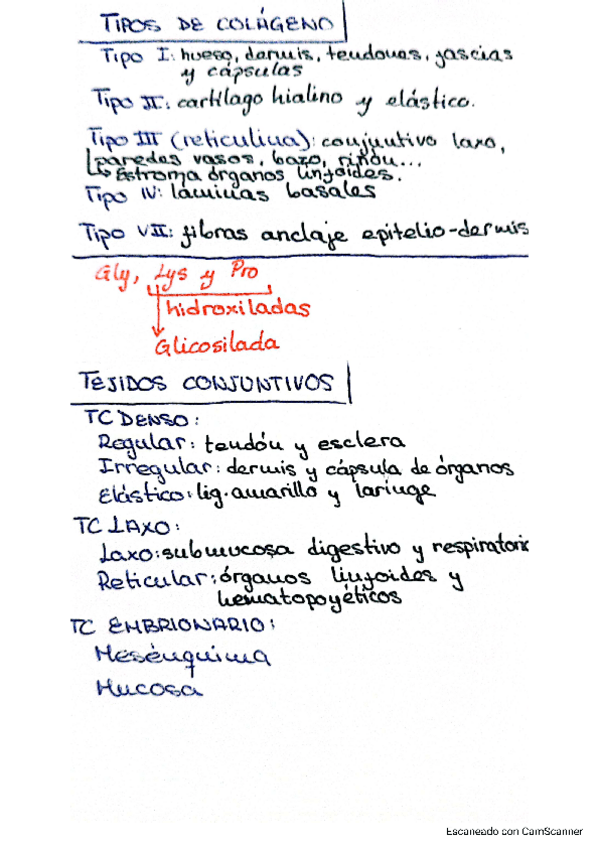 TIPOS DE COLÁGENO
Tipo I: hueso, dermis, tendones, fascias
y cápsulas
Tipo II: cartílago hialino y elástico.
Tipo III (reticulina): conjuntivo laxo,
paredes vasos, bazo, riñón...
↳ Estroma órganos linfoides.
Tipo IV: láminas basales
Tipo VII: fibras anclaje epitelio-dermis
Gly, Lys y Pro
hidroxiladas
Glicosilada
TEJIDOS CONJUNTIVOS
TC DENSO:
Regular: tendón y esclera
Irregular: dermis y cápsula de órganos
Elástico: lig. amarillo y laringe
TC LAXO:
Laxo: submucosa digestivo y respiratorio
Reticular: órganos linfoides y
hematopoyéticos
TC EMBRIONARIO:
Mesénquima
Mucosa
Escaneado con CamScanner